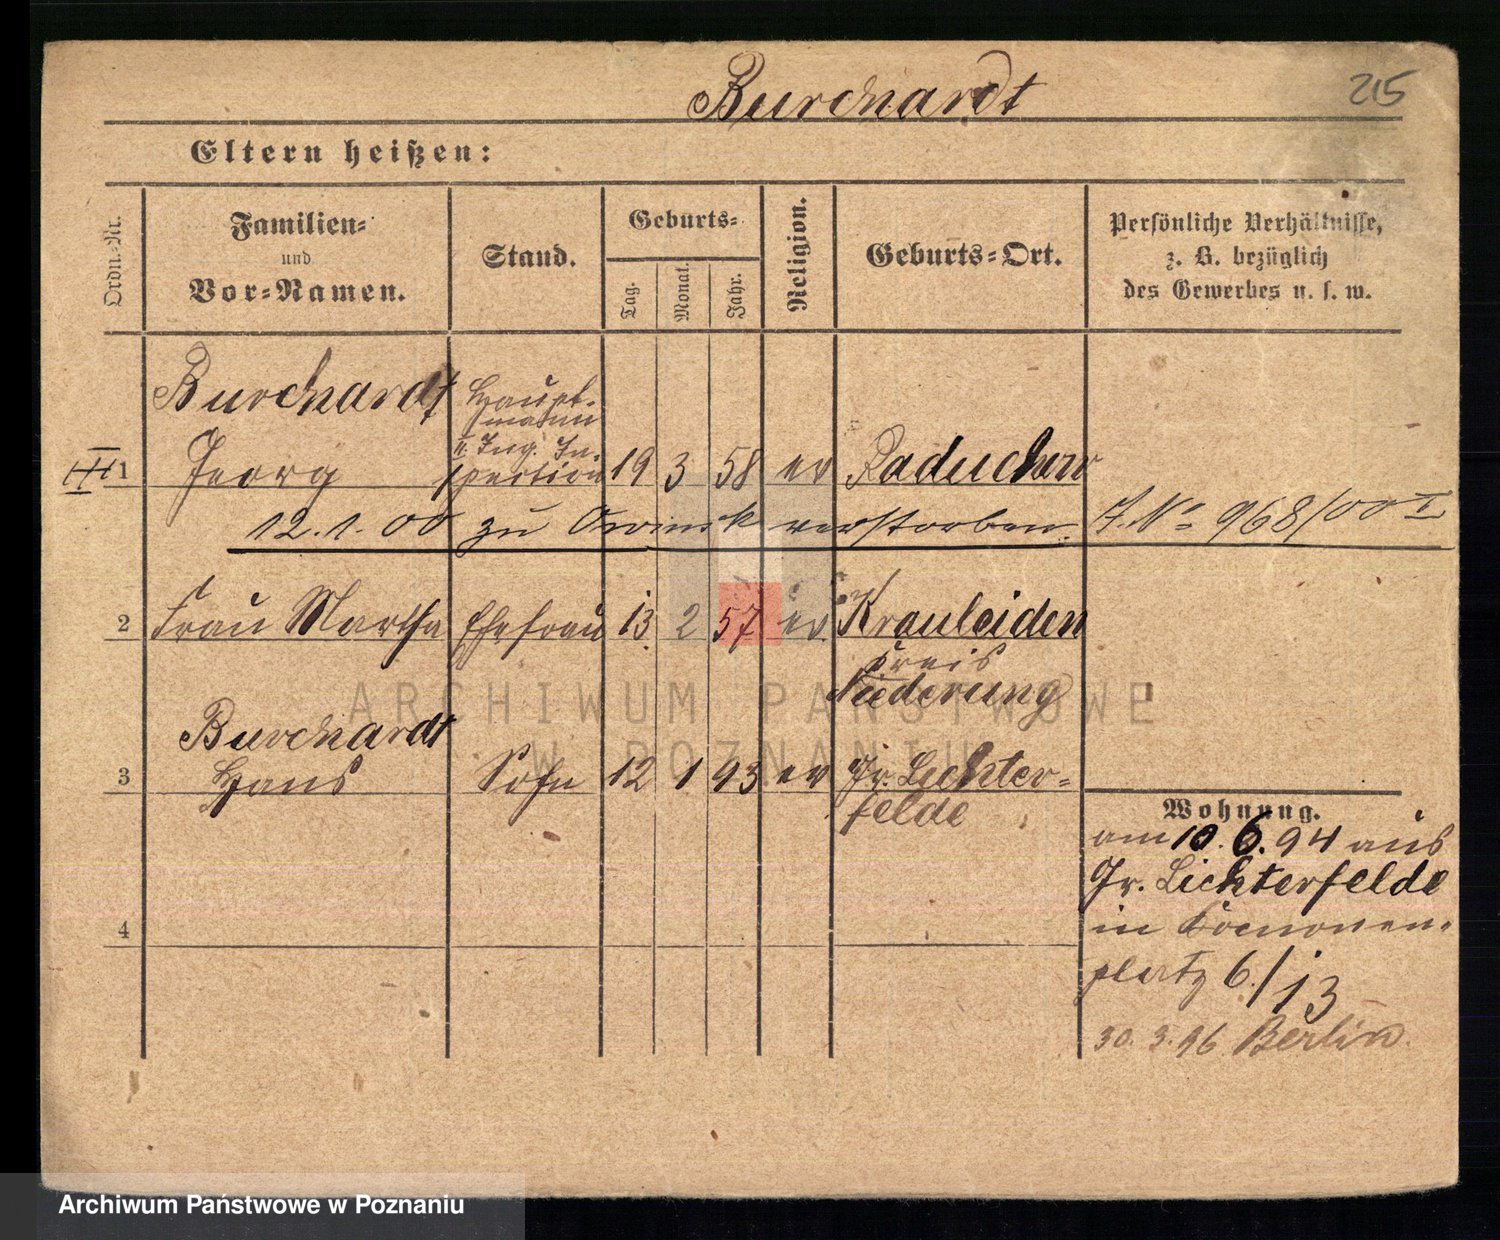 Burchardt
215
Eltern heißen:
Ordn.-Nr.
Familien-
und
Vor-Namen.
Stand.
Geburts-
Tag.
Monat.
Jahr.
Religion.
Geburts-Ort.
Persönliche Verhältnisse,
z. B. bezüglich
des Gewerbes u. s. w.
Burchardt
Haupt-
mann
II. Ing. In-
III 1 Georg spection 19 3 58 ev Raduchow
12.1.00 zu verstorben. J. No 968/00 I
2 Frau Martha Ehefrau 13 2 57 ev. Krauleiden
Kreis
Niederung
Burchardt
3 Hans Sohn 12 1 93 ev Gr. Lichter-
felde
4
Wohnung.
am 10.6.94 aus
Gr. Lichterfelde
in Kanonen-
platz 6/13
30.3.96 Berlin.
ARCHIWUM PAŃSTWOWE
W POZNANIU
Archiwum Państwowe w Poznaniu